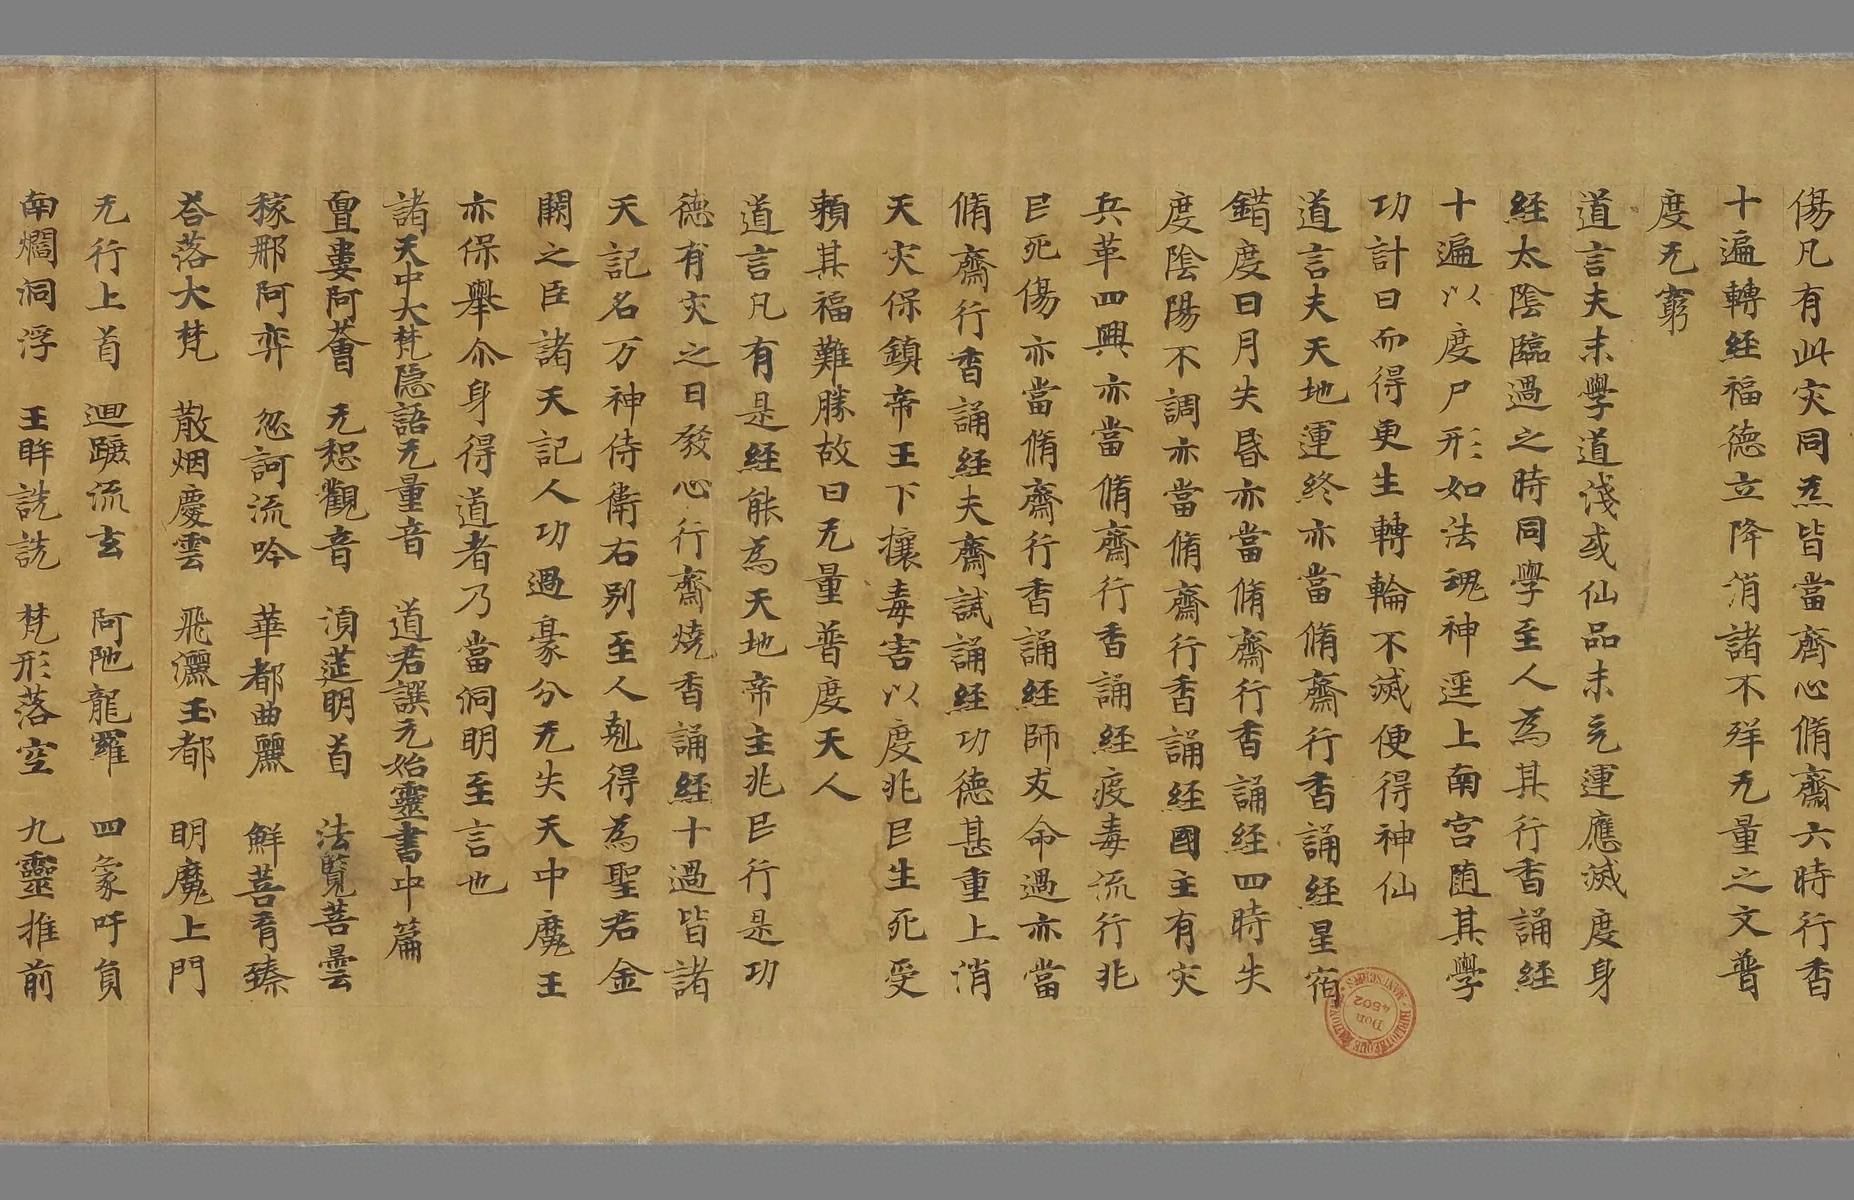 傷凡有此灾同炁皆當齊心脩齋六時行香
十遍轉經福德立降消諸不祥无量之文普
度无窮
道言夫末學道淺或仙品未充運應滅度身
經太陰臨過之時同學至人為其行香誦經
十遍以度尸形如法魂神逕上南宮随其學
功計日而得更生轉輪不滅便得神仙
道言夫天地運終亦當脩齋行香誦經星宿
錯度日月失昏亦當脩齋行香誦經四時失
度陰陽不調亦當脩齋行香誦經國主有灾
兵革四興亦當脩齋行香誦經疫毒流行兆
民死傷亦當脩齋行香誦經師友命過亦當
脩齋行香誦經夫齋誡誦經功德甚重上消
天灾保鎮帝王下攘毒害以度兆民生死受
賴其福難勝故曰无量普度天人
道言凡有是經能為天地帝主兆民行是功
德有灾之日發心行齋燒香誦經十過皆諸
天記名万神侍衛右别至人剋得為聖君金
闕之臣諸天記人功過豪分无失天中魔王
亦保舉尒身得道者乃當洞明至言也
諸天中大梵隠語无量音 道君譔元始靈書中篇
亶婁阿薈 无惒觀音 湏莚明首 法覽菩曇
稼那阿弈 忽訶流吟 華都曲麗 鮮菩育臻
荅落大梵 散烟慶雲 飛灑玉都 明魔上門
无行上首 迴蹠流玄 阿陁龍羅 四象吁員
南爓洞浮 玉眸詵詵 梵形落空 九靈推前
BIBLIOTHEQUE NATIONALE MANUSCRITS
Don 4502